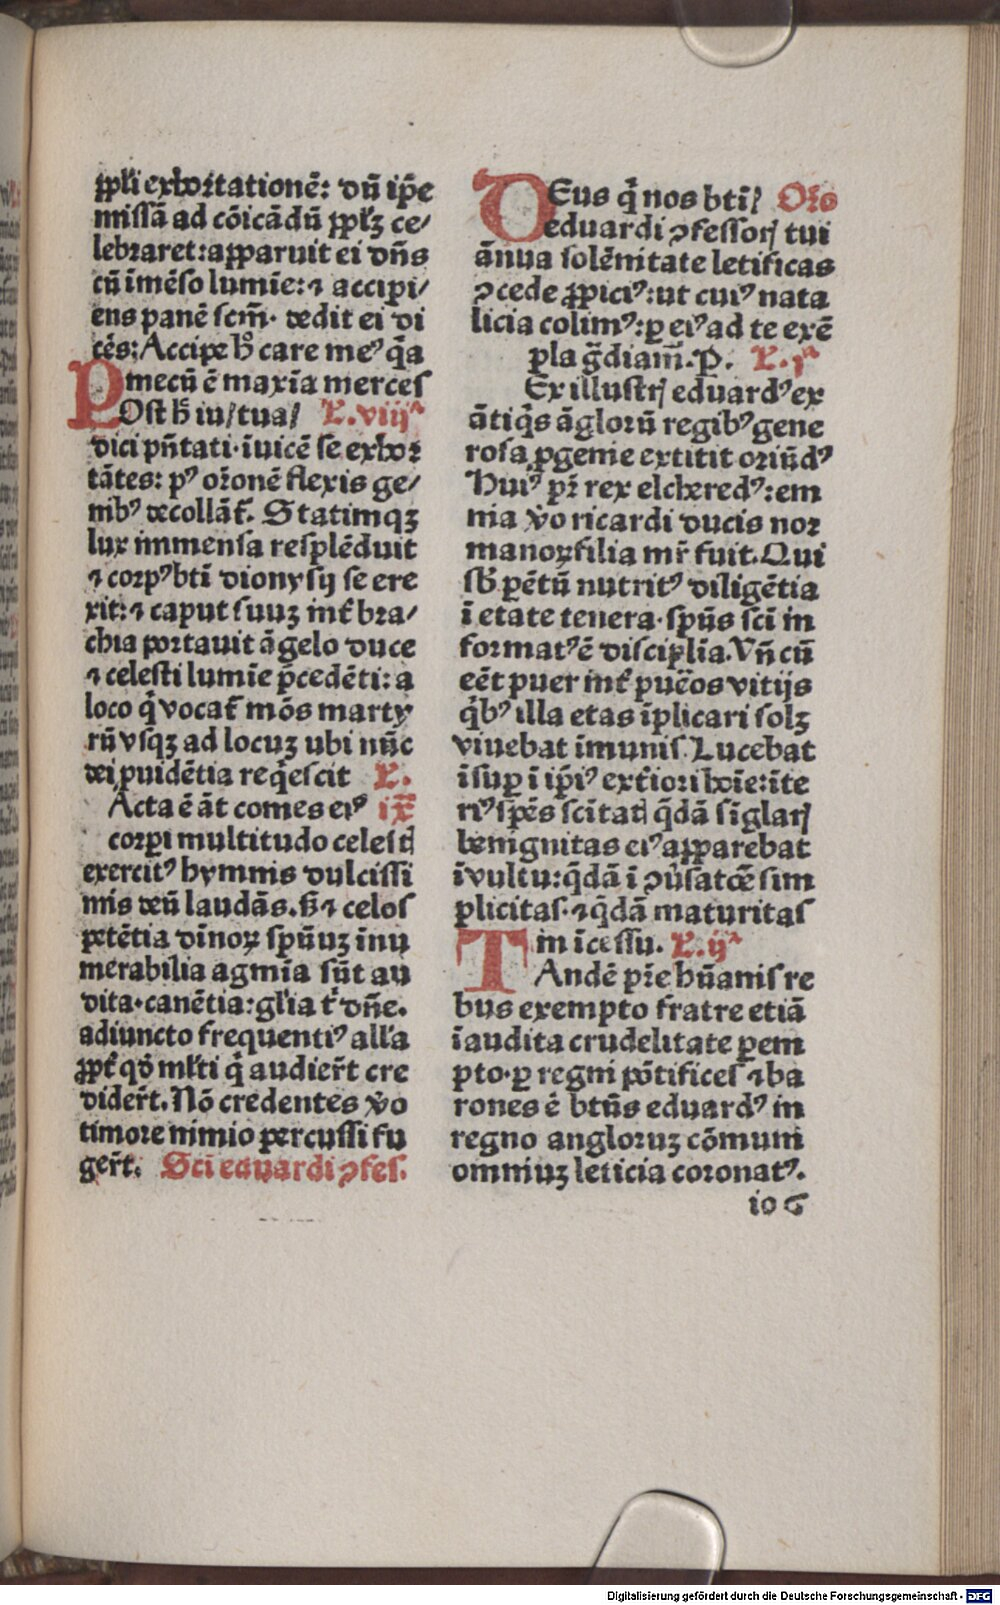 ꝓpl'i exhortationē: dū ip̄e
missā ad cōicādū ꝓpl'ꝫ ce/
lebraret: aꝑparuit ei dn̄s
cū īmēso lumīe: ⁊ accipi/
ens panē scm̄· dedit ei di
cēs: Accipe h̄ care meꝰ q̄a
mecū ē maxīa merces
POst h̄ iu/tua/ L.viijᵃ
dici pn̄tati· īuicē se exhor
tātes: pꝰ or̄onē flexis ge/
nibꝰ decollāt̄. Statimqꝫ
lux immensa resplēduit
⁊ corpꝰ bti̅ dionysij se ere
xit: ⁊ caput suuꝫ int̄ bra/
chia portauit āgelo duce
⁊ celesti lumīe p̄cedēti: a
loco q̄ vocat̄ mōs marty
rū vsqꝫ ad locuꝫ ubi nūc
dei ꝓuidētia reqͥescit L.
Acta ē āt comes eiꝰ ix̄
corpi multitudo celest
exercitꝰ hymnis dulcissi
mis deū laudās. h̄ ⁊ celos
petētia dīnoꝝ spūuꝫ īnu
merabilia agmīa sūt au
dita· canētia: gl'ia t̄ dn̄e.
adiuncto frequentiꝰ all'a
ꝓpt̄ qd̄ ml'ti q̄ audier̄t cre
dider̄t. Nō credentes v̄o
timore nimio percussi fu
ger̄t. Sci eduardi ꝯfes.
DEus qͥ nos bti̅ Or̄o
eduardi ꝯfessor tui
ānua solēnitate letificas
ꝯcede ꝓpiciꝰ: ut cuiꝰ nata
licia colimꝰ: ꝑ eiꝰ ad te exē
pla g̅diam̄. P. L.jᵃ
Ex illustr eduardꝰ ex
ātiqͥs āgloꝛū regibꝰ gene
rosa ꝓgenie extitit oriūdꝰ
Huiꝰ pr̄ rex elcheredꝰ: em
ma v̄o ricardi ducis nor
manoꝝ filia mr̄ fuit. Qui
sb̄ ꝑētū nutritꝰ diligētia
ī etate tenera· spūs sc̄i in
formatꝰ ē disciplīa. Vn̄ cū
eēt puer int̄ pueros vitijs
qͥbꝰ illa etas īplicari solꝫ
viuebat īmunis. Lucebat
īsuꝑ ī ip̄iꝰ ext̄iori hoīe: īte
riꝰ spēs sc̄itat q̄dā sīglar
benignitas eiꝰ aꝑparebat
ī vultu: q̄dā ī ꝯūsatōe sim
plicitas· ⁊ q̄dā maturitas
in īcessu. L.ijᵃ
TAndē pr̄e hūanis re
bus exempto fratre etiā
īaudita crudelitate ꝑem
pto· ꝑ regni pōtifices ⁊ ba
rones ē bt̄us eduardꝰ in
regno angloruꝫ cōmuni
omniuꝫ leticia coronatꝰ.
io G
Digitalisierung gefördert durch die Deutsche Forschungsgemeinschaft - DFG